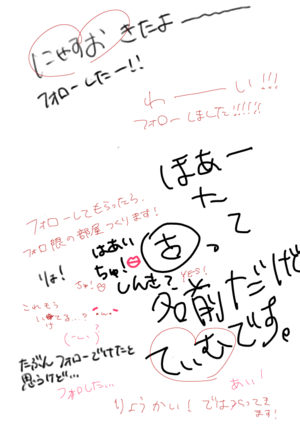 にゃすお きたよーーー
フォローしたー!!
わーーい!!!
フォローしました!!!!!!
ほあー
たて
古って
フォローしてもらったら、
フォロ限の部屋つくります!
はあい
ちゅ!
しんきて?
YES!
りょ!
ちゅ!
これもう
名前だけど
てぃむです。
たぶんフォローでけたと
思うけど…
フォロした…
あい!
りょうかい!では入ってき
ます!